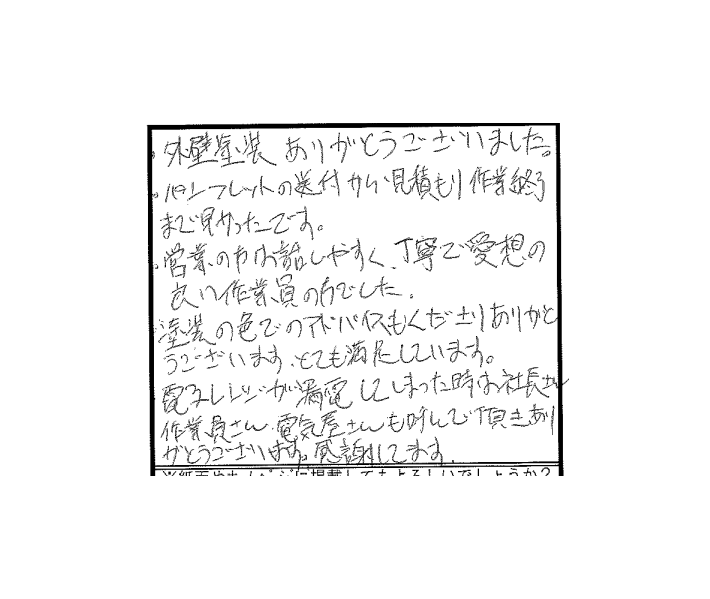 ・外壁塗装 ありがとうございました。
・パンフレットの送付から、見積もり作業終了
まで早かったです。
・営業の方は話しやすく、丁寧で愛想の
良い作業員の方でした。
塗装の色でのアドバイスもくださりありがと
うございます。とても満足しています。
電子レンジが漏電してしまった時は社長さん
作業員さん、電気屋さんも呼んで頂きあり
がとうございます。感謝してます。